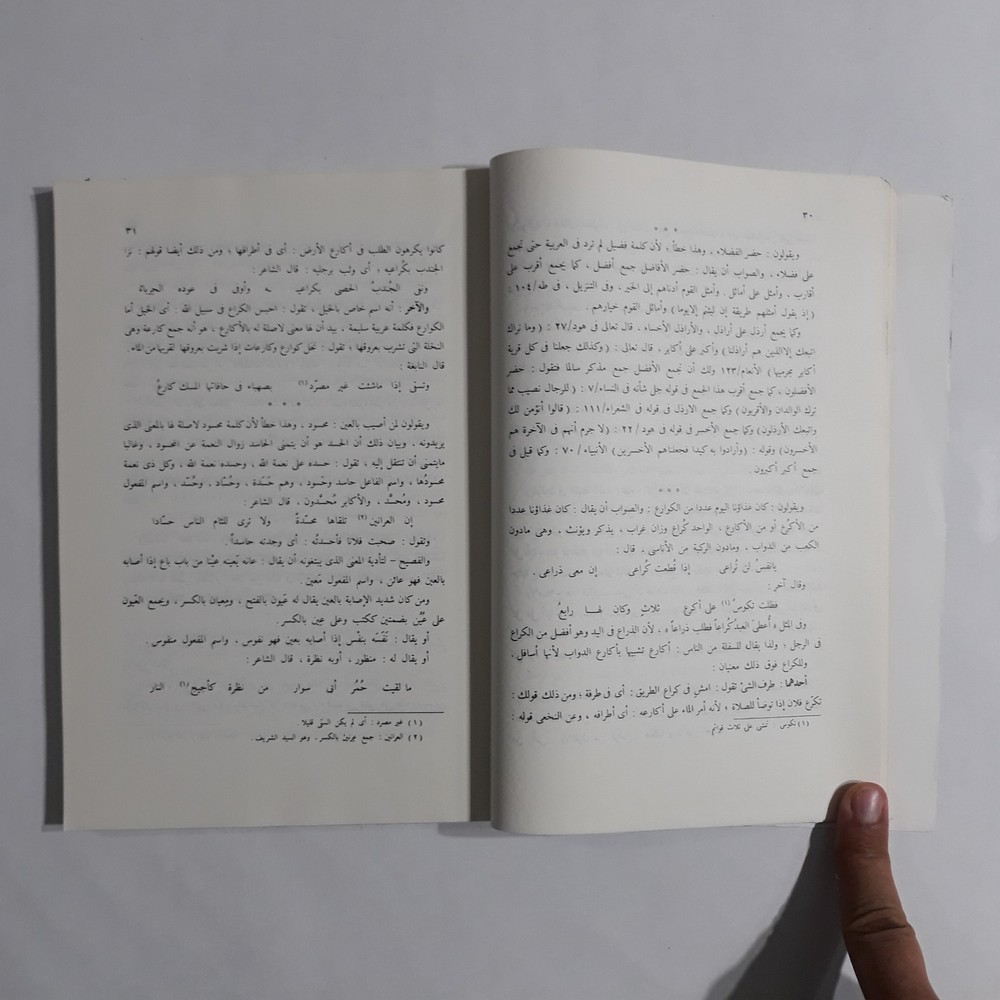 ٣٠
* * *
ويقولون : حضر الفضلاء . وهذا خطأ ، لأن كلمة فضيل لم ترد فى العربية حتى تجمع
على فضلاء . والصواب أن يقال : حضر الأفاضل جمع أفضل ، كما يجمع أقرب على
أقارب ، وأمثل على أماثل . وأمثل القوم أدناهم إلى الخير ، وفى التنزيل ، فى طه/١٠٤ :
(إذ يقول أمثلهم طريقة إن لبثتم إلا يوما) وأماثل القوم خيارهم .
وكما يجمع أرذل على أراذل ، والأراذل الأخساء . قال تعالى فى هود/٢٧ : (وما نراك
اتبعك إلا الذين هم أراذلنا) وأكبر على أكابر ، قال تعالى : (وكذلك جعلنا فى كل قرية
أكابر مجرميها) الأنعام/١٢٣ ولك أن تجمع الأفضل جمع مذكر سالما فتقول : حضر
الأفضلون ، كما جمع أقرب هذا الجمع فى قوله جلى شأنه فى النساء/٧ : (للرجال نصيب مما
ترك الوالدان والأقربون) وكما جمع الارذل فى قوله فى الشعراء/١١١ : (قالوا أنؤمن لك
واتبعك الأرذلون) وكما جمع الأخسر فى قوله فى هود/٢٢ : (لا جرم أنهم فى الآخرة هم
الأخسرون) وقوله : (وأرادوا به كيدا فجعلناهم الأخسرين) الأنبياء/٧٠ : وكما قيل فى
جمع أكبر أكبرون .
* * *
ويقولون : كان غذاؤنا اليوم عددا من الكوارع ; والصواب أن يقال : كان غذاؤنا عددا
من الأكرُع أو من الأكارع ، الواحد كُراع وزان غراب ، يذكر ويؤنث . وهى مادون
الكعب من الدواب ، ومادون الركبة من الأناسى . قال :
يانفسُ لن تُراعى إذا قُطعت كُراعى إن معى ذراعى .
وقال آخر :
فظلت تكوسُ (١) على أكرعٍ ثلاثٍ وكان لها رابعُ
وفى المثل « أُعطىَ العبدُ كُراعاً فطلب ذراعاً » ، لأن الذراع فى اليد وهو أفضل من الكراع
فى الرجل ; ولذا يقال للسفلة من الناس : أكارع تشبيها بأكارع الدواب لأنها أسافل .
وللكراع فوق ذلك معنيان :
أحدهما : طرف الشئ تقول : امشِ فى كراع الطريق : أى فى طرفة ; ومن ذلك قولك :
تكرّع فلان إذا توضأ للصلاة ، لأنه أمر الماء على أكارعه : أى أطرافه ، وعن النخعى قوله :
(١) تكوس : تمشى على ثلاث قوائم .
٣١
كانوا يكرهون الطلب فى أكارع الأرض : أى فى أطرافها ; ومن ذلك أيضا قولهم : نزا
الجندب بكُراعيه ; أى وثب برجليه : قال الشاعر :
ونفى الجُندبُ الحصى بكراعيه وأوفى فى عوده الحرباءُ
والآخر : أنه اسم خاص بالخيل ، تقول : احبس الكراع فى سبيل الله : أى الخيل أما
الكوارع فكلمة عربية سليمة ، بيد أن لها معنى لاصلة له بالأكارع ، هو أنه جمع كارعة وهى
النخلة التى تشرب بعروقها ; تقول : نخل كوارع وكارعات إذا شربت بعروقها لقربها من الماء.
قال النابغة :
وتسقى إذا ماشئت غير مصرّد(١) بصهباء فى حافاتها المسك كارعُ
* * *
ويقولون لمن أصيب بالعين : محسود . وهذا خطأ لأن كلمة محسود لاصلة لها بالمعنى الذى
يريدونه . وبيان ذلك أن الحسد هو أن يتمنى الحاسد زوال النعمة عن المحسود . وغالبا
مايتمنى أن تنتقل إليه ، تقول : حسده على نعمة الله ، وحسده نعمة الله . وكل ذى نعمة
محسودُها ، واسم الفاعل حاسد وحُسود ، وهم حَسَدة ، وحُسّاد ، وحُسّد . واسم المفعول
محسود ، ومُحسَّد . والأكابر مُحسَّدون . قال الشاعر :
إن العرانين (٢) تلقاها محسَّدةً ولا ترى للئام الناس حسّادا
وتقول : صحبت فلانا فأحسدتُه : أى وجدته حاسداً .
والفصيح – لتأدية المعنى الذى يبتغونه أن يقال : عانه يَعِينه عيْنا من باب باع إذا أصابه
بالعين فهو عائن ، واسم المفعول مَعين .
ومن كان شديد الإصابة بالعين يقال له عَيون بالفتح ، ومِعيان بالكسر . ويجمع العَيون
على عُيُن بضمتين ككتب وعلى عِين بالكسر .
أو يقال : نَفَسَه بنَفْس إذا أصابه بعين فهو نفوس ، واسم المفعول منفوس .
أو يقال له : منظور ، أوبه نظرة . قال الشاعر :
ما لقيت حُمُر أبى سوار من نظرة كأجيج(١) النار
(١) غير مصرد : أى لم يكن السقى قليلا
(٢) العرانين : جمع عِرنين بالكسر . وهو السيد الشريف .